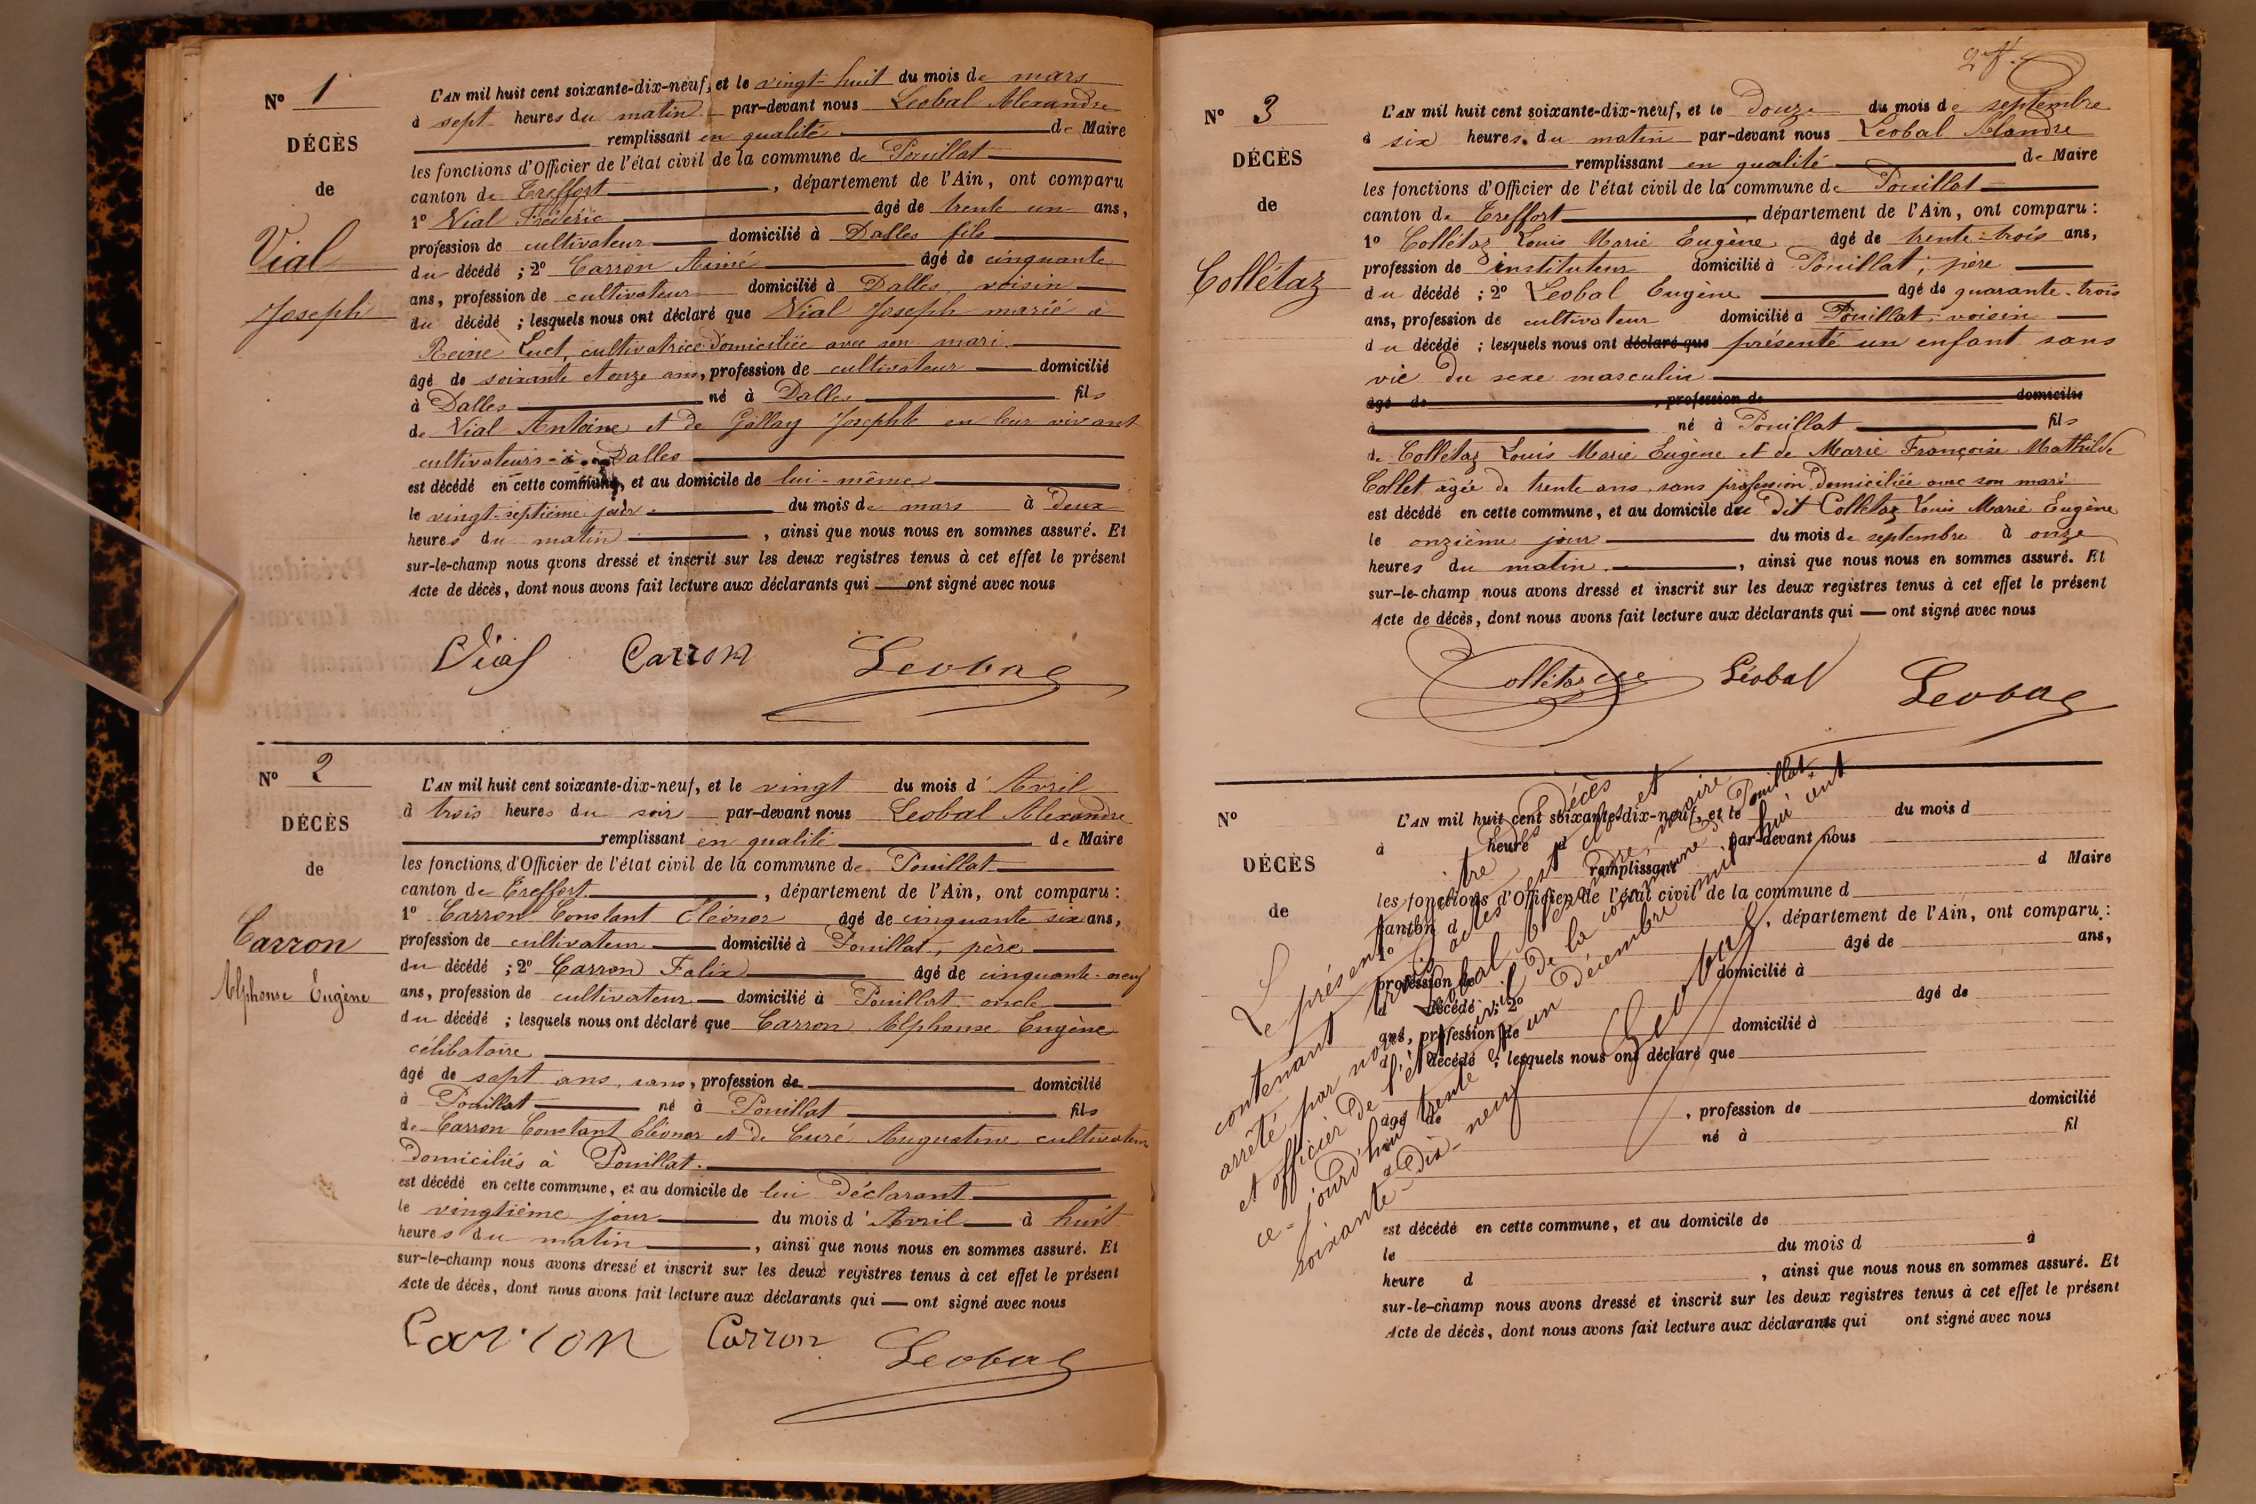 N° 1
DÉCÈS
de
Vial
Joseph
L'AN mil huit cent soixante-dix-neuf, et le vingt-huit du mois de mars
à sept heures du matin par-devant nous Leobal Alexandre
remplissant en qualité de Maire
les fonctions d'Officier de l'état civil de la commune de Pouillat
canton de Treffort, département de l'Ain, ont comparu
1° Vial Frédéric âgé de trente un ans,
profession de cultivateur domicilié à Dalles fils
du décédé ; 2° Carron Aimé âgé de cinquante
ans, profession de cultivateur domicilié à Dalles, voisin
du décédé ; lesquels nous ont déclaré que Vial Joseph marié à
Reine Luet, cultivatrice domiciliée avec son mari
âgé de soixante et onze ans, profession de cultivateur domicilié
à Dalles né à Dalles fils
de Vial Antoine et de Gallay Josephte en leur vivant
cultivateurs à Dalles
est décédé en cette commune, et au domicile de lui-même
le vingt-septième jour du mois de mars à deux
heures du matin, ainsi que nous nous en sommes assuré. Et
sur-le-champ nous avons dressé et inscrit sur les deux registres tenus à cet effet le présent
Acte de décès, dont nous avons fait lecture aux déclarants qui — ont signé avec nous
Vial Carron Leobal
N° 2
DÉCÈS
de
Carron
Alphonse Eugène
L'AN mil huit cent soixante-dix-neuf, et le vingt du mois d'Avril
à trois heures du soir par-devant nous Leobal Alexandre
remplissant en qualité de Maire
les fonctions d'Officier de l'état civil de la commune de Pouillat
canton de Treffort, département de l'Ain, ont comparu :
1° Carron Constant Éléonor âgé de cinquante six ans,
profession de cultivateur domicilié à Pouillat, père
du décédé ; 2° Carron Félix âgé de cinquante-neuf
ans, profession de cultivateur domicilié à Pouillat oncle
du décédé ; lesquels nous ont déclaré que Carron Alphonse Eugène
célibataire
âgé de sept ans, sans, profession de domicilié
à Pouillat né à Pouillat fils
de Carron Constant Eléonor et de Curé Augustine cultivateurs
domiciliés à Pouillat.
est décédé en cette commune, et au domicile de lui déclarant
le vingtième jour du mois d'Avril à huit
heures du matin, ainsi que nous nous en sommes assuré. Et
sur-le-champ nous avons dressé et inscrit sur les deux registres tenus à cet effet le présent
Acte de décès, dont nous avons fait lecture aux déclarants qui — ont signé avec nous
Carron Carron Leobal
N° 3
DÉCÈS
de
Collétaz
L'AN mil huit cent soixante-dix-neuf, et le douze du mois de septembre
à six heures du matin par-devant nous Leobal Alandre
remplissant en qualité de Maire
les fonctions d'Officier de l'état civil de la commune de Pouillat
canton de Treffort, département de l'Ain, ont comparu :
1° Collétaz Louis Marie Eugène âgé de trente-trois ans,
profession de instituteur domicilié à Pouillat, père
du décédé ; 2° Leobal Eugène âgé de quarante-trois
ans, profession de cultivateur domicilié à Pouillat, voisin
du décédé ; lesquels nous ont déclaré que présenté un enfant sans
vie du sexe masculin
âgé de, profession de domicilié
à né à Pouillat fils
de Collétaz Louis Marie Eugène et de Marie Françoise Mathilde
Collet âgée de trente ans, sans profession domiciliée avec son mari
est décédé en cette commune, et au domicile du dit Collétaz Louis Marie Eugène
le onzième jour du mois de septembre à onze
heures du matin, ainsi que nous nous en sommes assuré. Et
sur-le-champ nous avons dressé et inscrit sur les deux registres tenus à cet effet le présent
Acte de décès, dont nous avons fait lecture aux déclarants qui — ont signé avec nous
Collétaz Léobal Leobal
N°
DÉCÈS
de
L'AN mil huit cent soixante-dix-neuf, et le du mois d
à heure d par-devant nous
remplissant d Maire
les fonctions d'Officier de l'état civil de la commune d
canton d, département de l'Ain, ont comparu :
1° âgé de ans,
profession de domicilié à
d décédé ; 2° âgé de
ans, profession de domicilié à
d décédé ; lesquels nous ont déclaré que
âgé de, profession de domicilié
à né à fil
est décédé en cette commune, et au domicile de
le du mois d à
heure d, ainsi que nous nous en sommes assuré. Et
sur-le-champ nous avons dressé et inscrit sur les deux registres tenus à cet effet le présent
Acte de décès, dont nous avons fait lecture aux déclarants qui ont signé avec nous
Le présent registre des décès
contenant trois actes est clos et
arrêté par nous Leobal Alexandre, maire
et officier de l'état civil de la commune de Pouillat,
ce-jourd'hui trente et un décembre mil huit cent
soixante-dix-neuf
Leobal